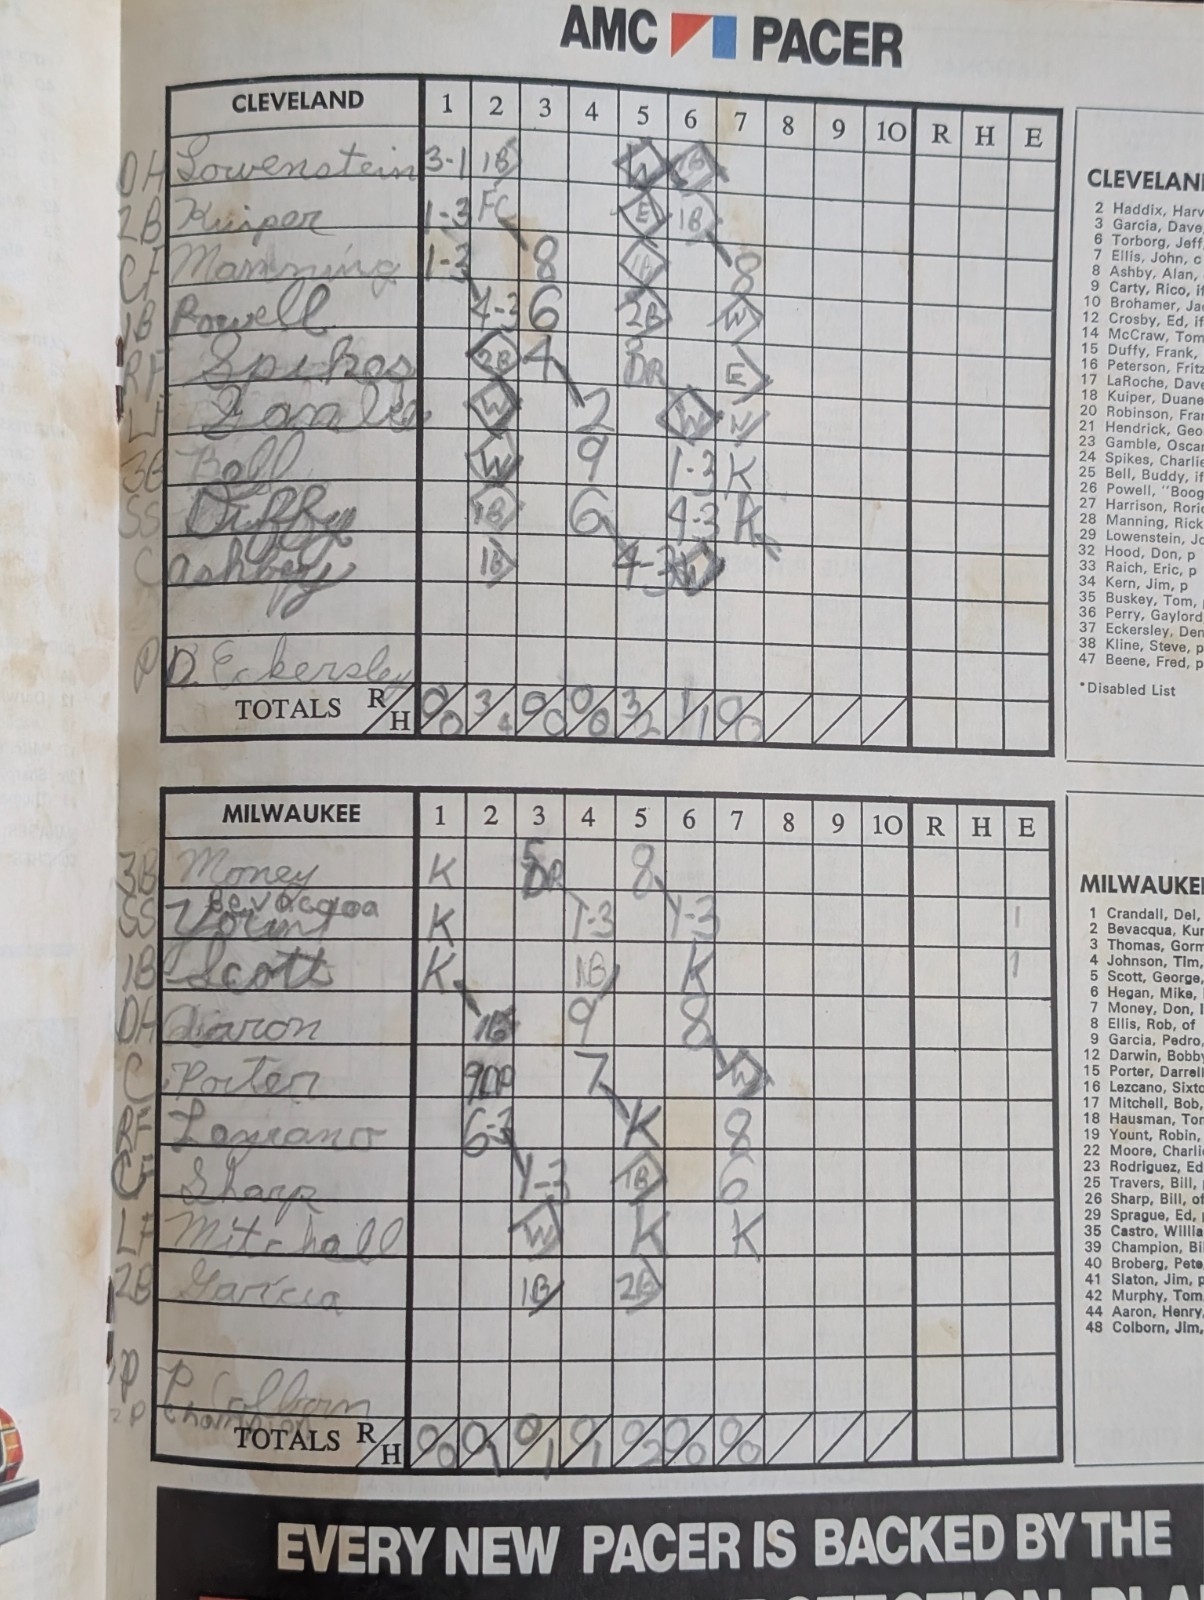 AMC PACER
CLEVELAND 1 2 3 4 5 6 7 8 9 10 R H E
DH Lowenstein 3-1 1B W 1B
2B Kuiper 1-3 FC E 1B
CF Manning 1-3 8 1B 8
1B Powell 4-3 6 2B W
RF Spikes 2B 4 8 DR E
LF W 2 W W
3B Bell W 9 1-3 K
SS Duffy 1B 6 4-3 K
C Ashby 1B 4-3
P D. Eckersley
TOTALS R/H 0/0 3/4 0/0 0/0 3/2 1/1 0/0
MILWAUKEE 1 2 3 4 5 6 7 8 9 10 R H E
3B Money K 5 DR 8
Bevacqua
SS Yount K 1-3 1-3 1
1B Scott K 1B K 1
DH Aaron 1B 9 8
C Porter 9DP 7 W
RF 6-3 K 8
CF Sharp 1-3 1B 6
LF Mitchell W K K
2B Garcia 1B 2B
P Colborn
2P Champion
TOTALS R/H 0/0 0/1 0/1 0/1 0/2 0/0 0/0
EVERY NEW PACER IS BACKED BY THE
CLEVELAN
2 Haddix, Harv
3 Garcia, Dave,
6 Torborg, Jeff,
7 Ellis, John, c
8 Ashby, Alan,
9 Carty, Rico, if
10 Brohamer, Ja
12 Crosby, Ed, if
14 McCraw, Tom
15 Duffy, Frank,
16 Peterson, Fritz
17 LaRoche, Dave
18 Kuiper, Duane
20 Robinson, Fra
21 Hendrick, Geo
23 Gamble, Oscar
24 Spikes, Charlie
25 Bell, Buddy, if
26 Powell, "Boog
27 Harrison, Rorie
28 Manning, Rick
29 Lowenstein, Jo
32 Hood, Don, p
33 Raich, Eric, p
34 Kern, Jim, p
35 Buskey, Tom,
36 Perry, Gaylord
37 Eckersley, Den
38 Kline, Steve, p
47 Beene, Fred, p
*Disabled List
MILWAUKE
1 Crandall, Del,
2 Bevacqua, Kur
3 Thomas, Gorm
4 Johnson, Tim,
5 Scott, George,
6 Hegan, Mike,
7 Money, Don, i
8 Ellis, Rob, of
9 Garcia, Pedro,
12 Darwin, Bobby
15 Porter, Darrell
16 Lezcano, Sixto
17 Mitchell, Bob,
18 Hausman, Tom
19 Yount, Robin,
22 Moore, Charli
23 Rodriguez, Ed
25 Travers, Bill,
26 Sharp, Bill, of
29 Sprague, Ed,
35 Castro, Willia
39 Champion, Bil
40 Broberg, Pete
41 Slaton, Jim, p
42 Murphy, Tom,
44 Aaron, Henry,
48 Colborn, Jim,